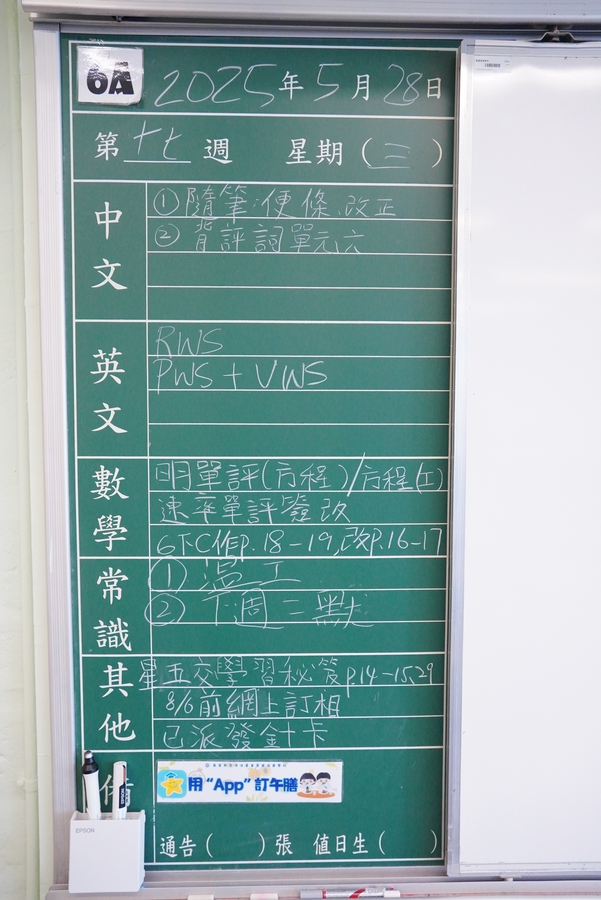 6A 2025年5月28日
第十七週 星期(三)
中文
①隨筆:便條.改正
②背評詞單元六
英文
RWS
PWS + VWS
數學
明單評(方程)/方程(工)
速率單評簽改
6下C作P.18-19,改P.16-17
常識
①溫工
②下週二默
其他
星五交學習秘笈p14-15,29
8/6前網上訂相
已派發針卡
用“App”訂午膳
EPSON
通告( )張 值日生( )